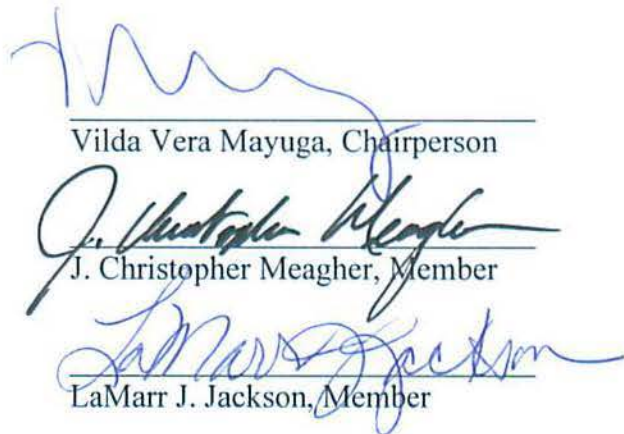 Vilda Vera Mayuga, Chairperson
J. Christopher Meagher
J. Christopher Meagher, Member
LaMarr J. Jackson
LaMarr J. Jackson, Member